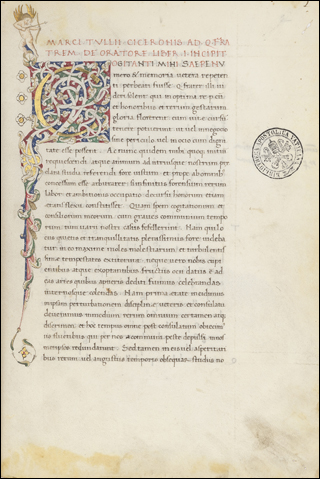 MARCI TVLLII CICERONIS AD Q FRA
TREM DE ORATORE LIBER I INCIPIT
OGITANTI MIHI SAEPENV
mero & memoria uetera repeten
ti perbeati fuisse Q frater illi ui
deri solent qui in optima re p. cu
et honoribus et rerum gestarum
gloria florerent eum uitae cursum
tenere potuerunt ut uel in negocio
sine periculo uel in ocio cum digni
tate esse possent. Ac tunc quidem mihi quoq; initium
requiescendi atque animum ad utriusque nostrum pre
clara studia referendi fore iustum et prope ab omnibus
concessum esse arbitrarer si infinitus forensium rerum
labor et ambitionis occupatio decursu honorum etiam
etatis flexu constitisset. Quam spem cogitationum et
consiliorum meorum cum graues communium tempo
rum tum uarii nostri casus fefellerunt. Nam qui lo
cus quietis et tranquillitatis plenissimus fore uideba
tur in eo maxime moles molestiarum et turbulentis
simae tempestates extiterunt neque uero nobis cupi
entibus atque exoptantibus fructus ocii datus est ad
eas artes quibus a pueris dediti fuimus celebrandas
inter nosque colendas. Nam prima etate incidimus
in ipsam perturbationem discipline ueteris et consulatu
deuenimus in medium rerum omnium certamen atq;
discrimen et hoc tempus omne post consulatum obiecim
us fluctibus qui per nos a communi peste depulsi in nos
metipsos redundarunt. Sed tamen in eis uel asperitati
bus rerum uel angustiis temporis obsequar studiis no